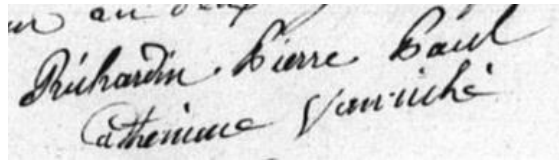 un au deux
Richardin Pierre Paul
Catherinne Vanriché